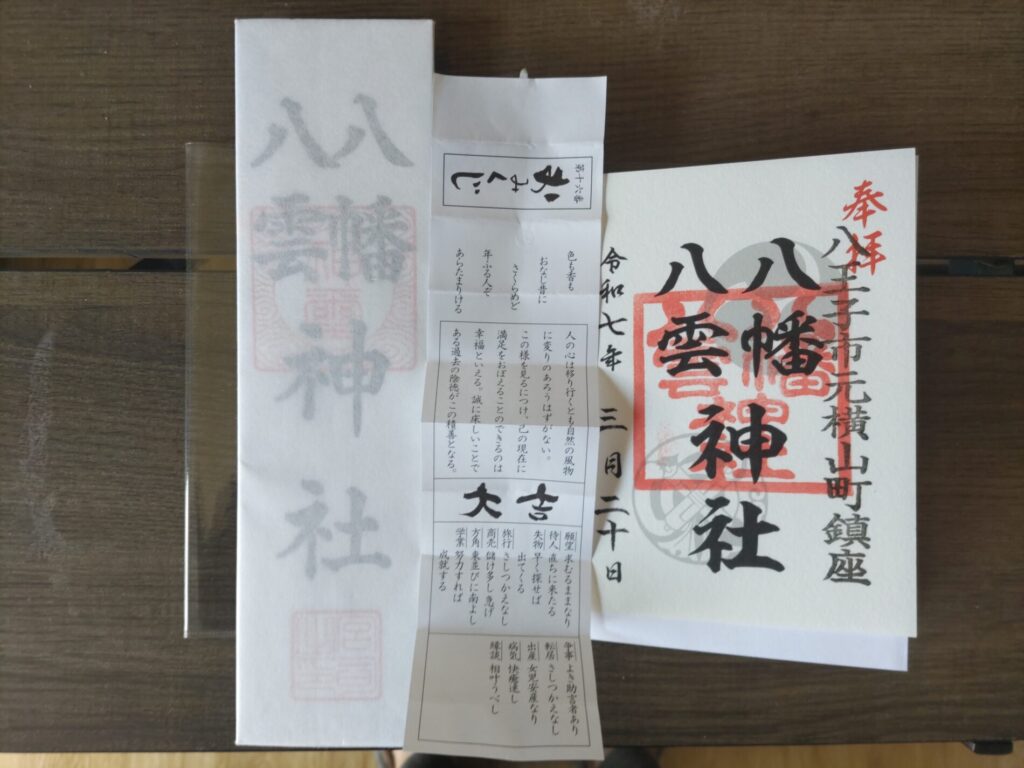 八幡
八雲
神社
おみくじ
第十六番
色も香も
おなじ昔に
さくらめど
年ふる人ぞ
あらたまりける
人の心は移り行くとも自然の風物
に変りのあろうはずがない。
この様を見るにつけ、己の現在に
満足をおぼえることのできるのは
幸福といえる。誠に床しいことで
ある過去の陰徳がこの積善となる。
大吉
願望 求むるままなり
待人 直ちに来たる
失物 早く探せば
出てくる
旅行 さしつかえなし
商売 儲け多し 急げ
方角 東並びに南よし
学業 努力すれば
成就する
争事 よき助言者あり
転居 さしつかえなし
出産 女児安産なり
病気 快癒速し
縁談 相叶うべし
奉拝
八王子市元横山町鎮座
八幡
八雲
神社
令和七年 三月二十日